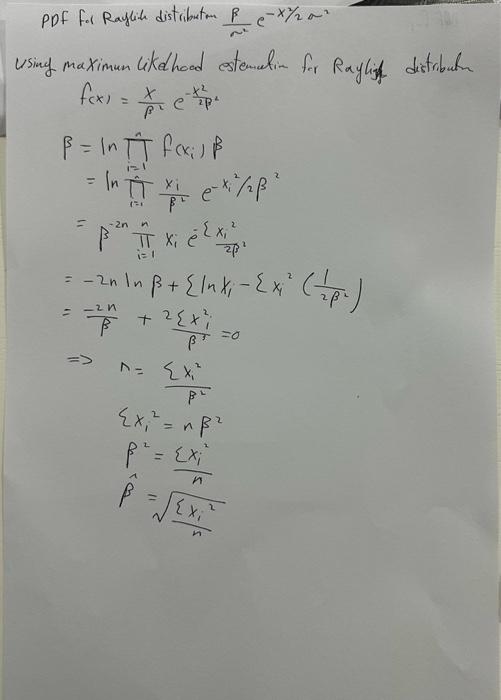 PDF for Rayligh distribution β/σ² e^-x²/2σ²
Using maximum likelihood estemation for Rayligh distribution
f(x) = x/β² e^-x²/2β²
β = ln ∏ᵢ₌₁ⁿ f(xᵢ) β
= ln ∏ᵢ₌₁ⁿ xᵢ/β² e^-xᵢ²/2β²
= β^-2n ∏ᵢ₌₁ⁿ xᵢ e^-Σxᵢ²/2β²
= -2n ln β + Σ ln xᵢ - Σ xᵢ² (1/2β²)
= -2n/β + 2Σxᵢ²/β³ = 0
=> n = Σxᵢ²/β²
Σxᵢ² = nβ²
β² = Σxᵢ²/n
β̂ = √(Σxᵢ²/n)